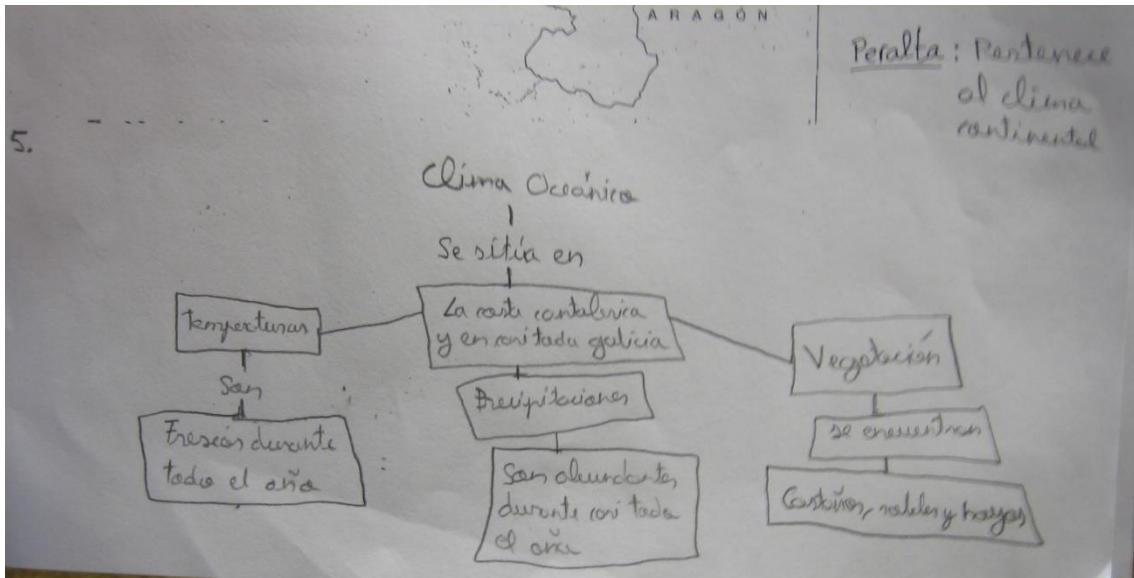 ARAGÓN
Peralta: Pertenece
al clima
continental
5.
Clima Oceánico
Se sitúa en
La costa cantabrica
y en casi toda galicia
Temperturas
Son
Frescas durante
todo el año
Precipitaciones
Son abundantes
durante casi todo
el año
Vegetación
se encuentran
Castaños, robles y hayas